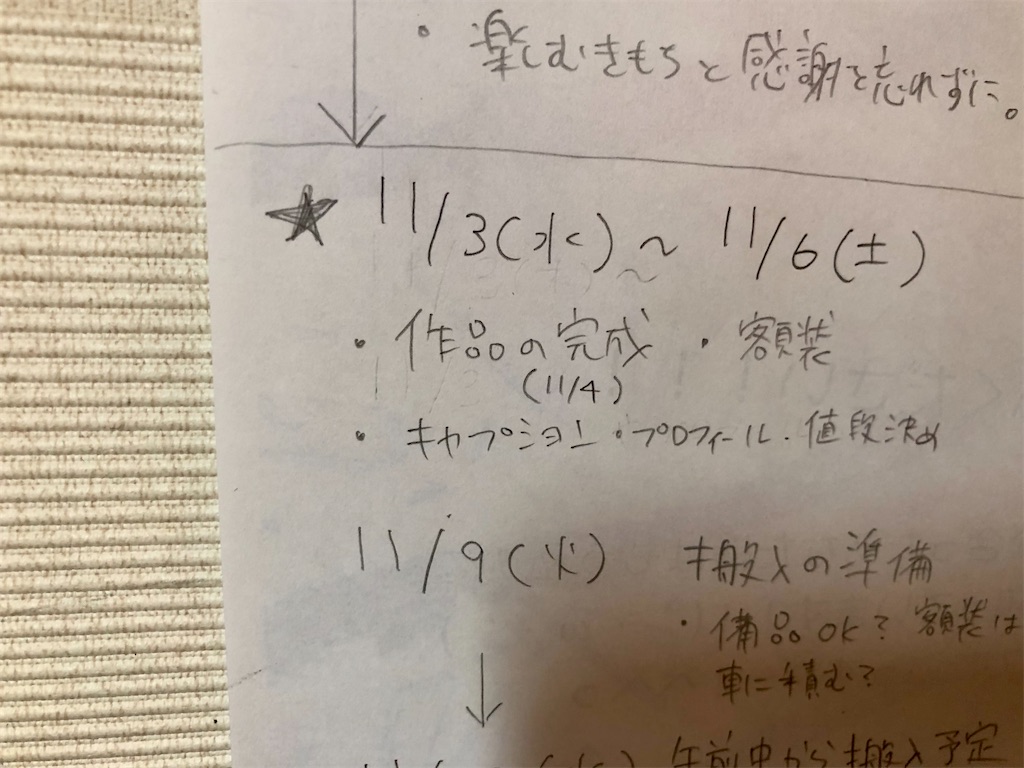 ・楽しむきもちと感謝を忘れずに。
★ 11/3(水)～11/6(土)
・作品の完成 ・額装
(11/4)
・キャプション・プロフィール・値段決め
11/9(火) 搬入の準備
・備品OK？額装は
車に積む？
午前中から搬入予定